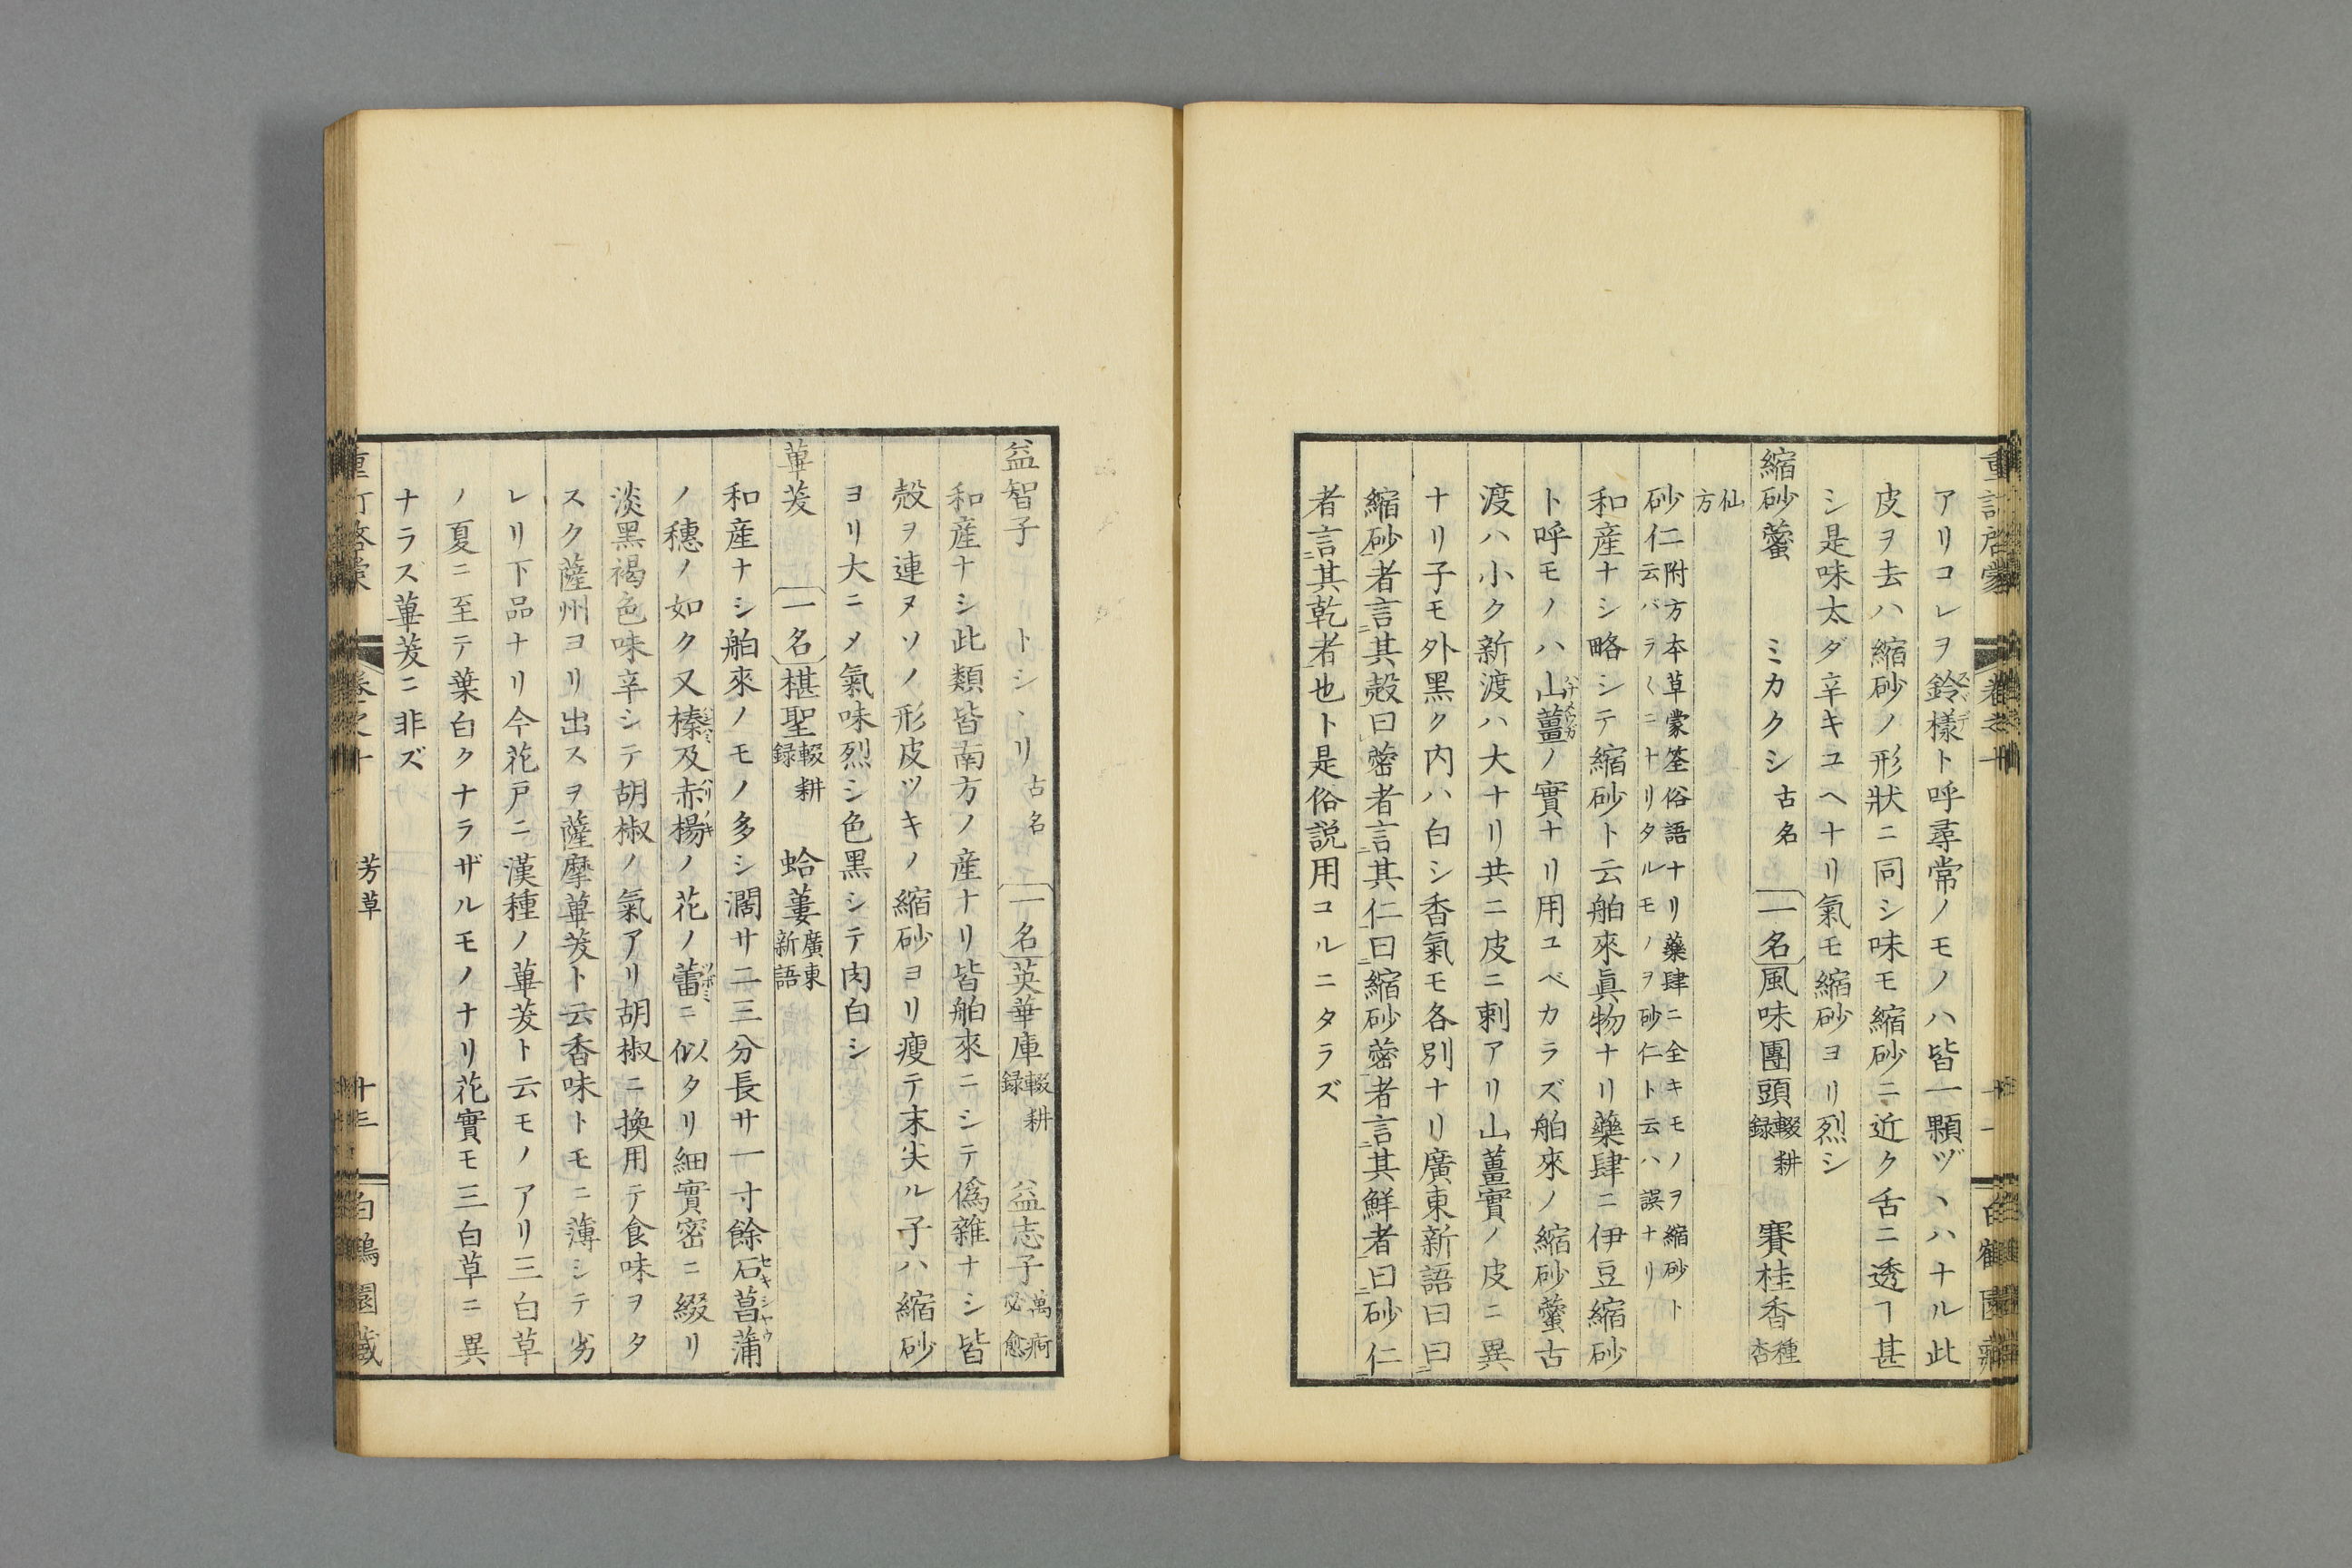 アリコレヲ鈴樣ト呼尋常ノモノハ皆一顆ヅヽハナル此
皮ヲ去ハ縮砂ノ形狀ニ同シ味モ縮砂ニ近ク舌ニ透ヿ甚
シ是味太ダ辛キユヘナリ氣モ縮砂ヨリ烈シ
縮砂蔤 ミカクシ古名 一名風味團頭輟耕録 賽桂香種杏
仙方
砂仁附方本草蒙筌俗語ナリ藥肆ニ全キモノヲ縮砂ト
云バヲ〱ニナリタルモノヲ砂仁ト云ハ誤ナリ
和産ナシ略シテ縮砂ト云舶來眞物ナリ藥肆ニ伊豆縮砂
ト呼モノハ山薑ノ實ナリ用ユベカラズ舶來ノ縮砂蔤古
渡ハ小ク新渡ハ大ナリ共ニ皮ニ刺アリ山薑實ノ皮ニ異
ナリ子モ外黑ク内ハ白シ香氣モ各別ナリ廣東新語曰曰
縮砂者言其殼曰蔤者言其仁曰縮砂蔤者言其鮮者曰砂仁
者言其乾者也ト是俗説用コルニタラズ
益智子 トシヽリ古名 一名英華庫輟耕録 益志子萬病必愈
和産ナシ此類皆南方ノ産ナリ皆舶來ニシテ僞雜ナシ皆
殼ヲ連ヌソノ形皮ツキノ縮砂ヨリ瘦テ末尖ル子ハ縮砂
ヨリ大ニメ氣味烈シ色黑シテ肉白シ
蓽茇 一名椹聖輟耕録 蛤蔞廣東新語
和産ナシ舶來ノモノ多シ濶サ二三分長サ一寸餘石菖蒲
ノ穗ノ如ク又榛及赤楊ノ花ノ蕾ニ似タリ細實密ニ綴リ
淡黑褐色味辛シテ胡椒ノ氣アリ胡椒ニ換用テ食味ヲタ
スク薩州ヨリ出スヲ薩摩蓽茇ト云香味トモニ薄シテ劣
レリ下品ナリ今花戸ニ漢種ノ蓽茇ト云モノアリ三白草
ノ夏ニ至テ葉白クナラザルモノナリ花實モ三白草ニ異
ナラズ蓽茇ニ非ズ
芳草 十三